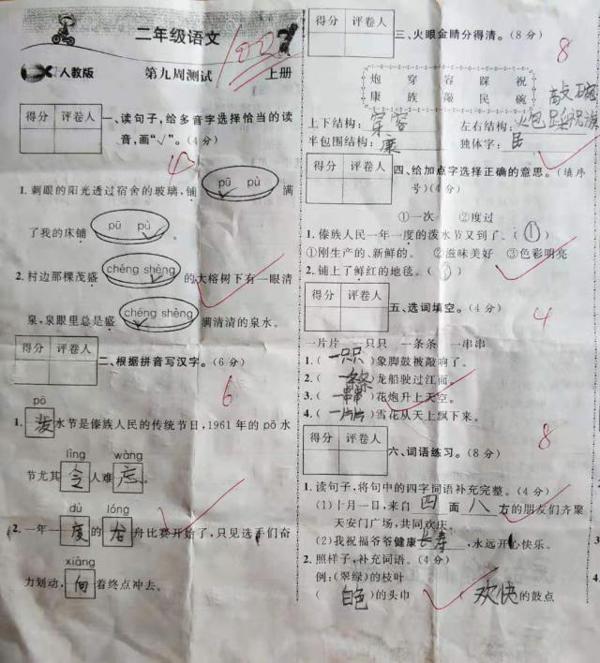 二年级语文
100
人教版
第九周测试
上册
得分 评卷人
一、读句子，给多音字选择恰当的读
音，画“√”。(4分)
4
1. 刺眼的阳光透过宿舍的玻璃，铺 pū pù 满
了我的床铺 pū pù
2. 村边那棵茂盛 chéng shèng 的大榕树下有一眼清
泉，泉眼里总是盛 chéng shèng 满清清的泉水。
得分 评卷人
二、根据拼音写汉字。(6分)
6
pō
1. 泼水节是傣族人民的传统节日，1961年的pō水
lìng wàng
节尤其令人难忘。
dù lóng
2. 一年一度的龙舟比赛开始了，只见选手们奋
xiàng
力划动，向着终点冲去。
得分 评卷人
三、火眼金睛分得清。(8分)
8
炮 穿 容 踩 祝
康 族 敞 民 碗
敞 碗
上下结构：穿容 左右结构：火包踩祝族
半包围结构：康 独体字：民
得分 评卷人
四、给加点字选择正确的意思。(填序
号)(4分)
①一次 ②度过
1. 傣族人民一年一度的泼水节又到了。(①)
①刚生产的、新鲜的。 ②滋味美好 ③色彩明亮
2. 铺上了鲜红的地毯。(③)
得分 评卷人
五、选词填空。(4分)
4
一片片 一只只 一条条 一串串
1. (一只只)象脚鼓被敲响了。
2. (一条条)龙船驶过江面。
3. (一串串)花炮升上天空。
4. (一片片)雪花从天上飘下来。
得分 评卷人
六、词语练习。(8分)
8
1. 读句子，将句中的四字词语补充完整。(4分)
(1)十月一日，来自四面八方的朋友们齐聚
天安门广场，共同欢庆。
(2)我祝福爷爷健康长寿，永远开心快乐。
2. 照样子，补充词语。(4分)
例：(翠绿)的枝叶
(白色)的头巾 (欢快)的鼓点